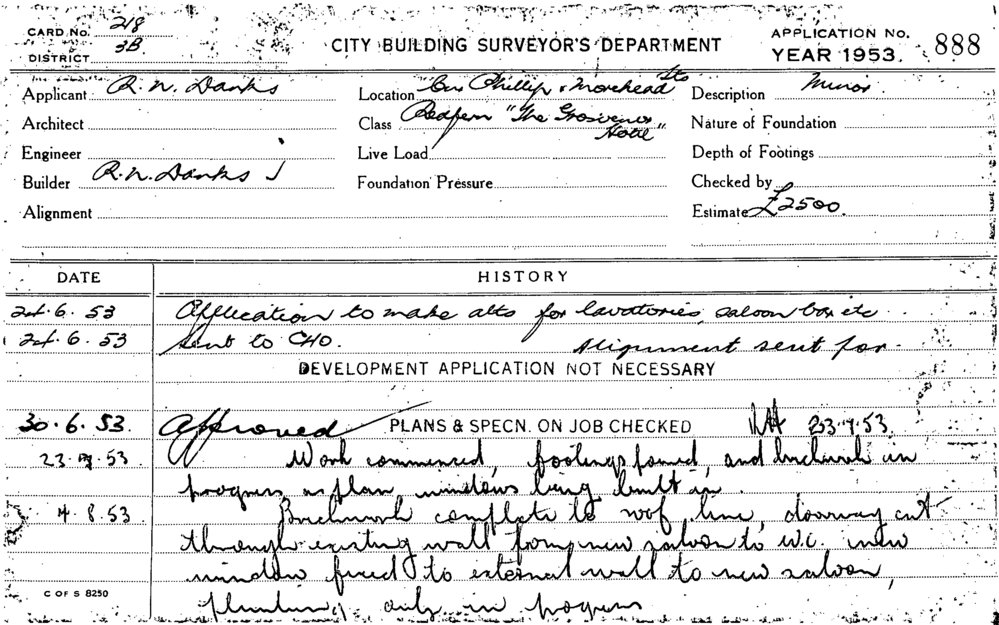 CARD No. 218
3B
DISTRICT
CITY BUILDING SURVEYOR'S DEPARTMENT
APPLICATION No.
YEAR 1953. 888
Applicant R. N. Danks
Location Cnr Phillip & Morehead Sts
Description Minor
Architect
Class Redfern "The Grosvenor Hotel"
Nature of Foundation
Engineer
Live Load
Depth of Footings
Builder R. N. Danks
Foundation Pressure
Checked by
Alignment
Estimate £2500.
DATE HISTORY
24.6.53 Application to make alts for lavatories, saloon bar etc
24.6.53 Sent to CHO. Alignment sent for.
DEVELOPMENT APPLICATION NOT NECESSARY
30.6.53 Approved PLANS & SPECN. ON JOB CHECKED 23.7.53
23.7.53 Work commenced, footings poured, and brickwork in
progress as plan windows being built in.
4.8.53 Brickwork complete to roof line, doorway cut
through existing wall from new saloon to W.C. new
window fixed to external wall to new saloon,
plumbing only in progress
C OF S 8250